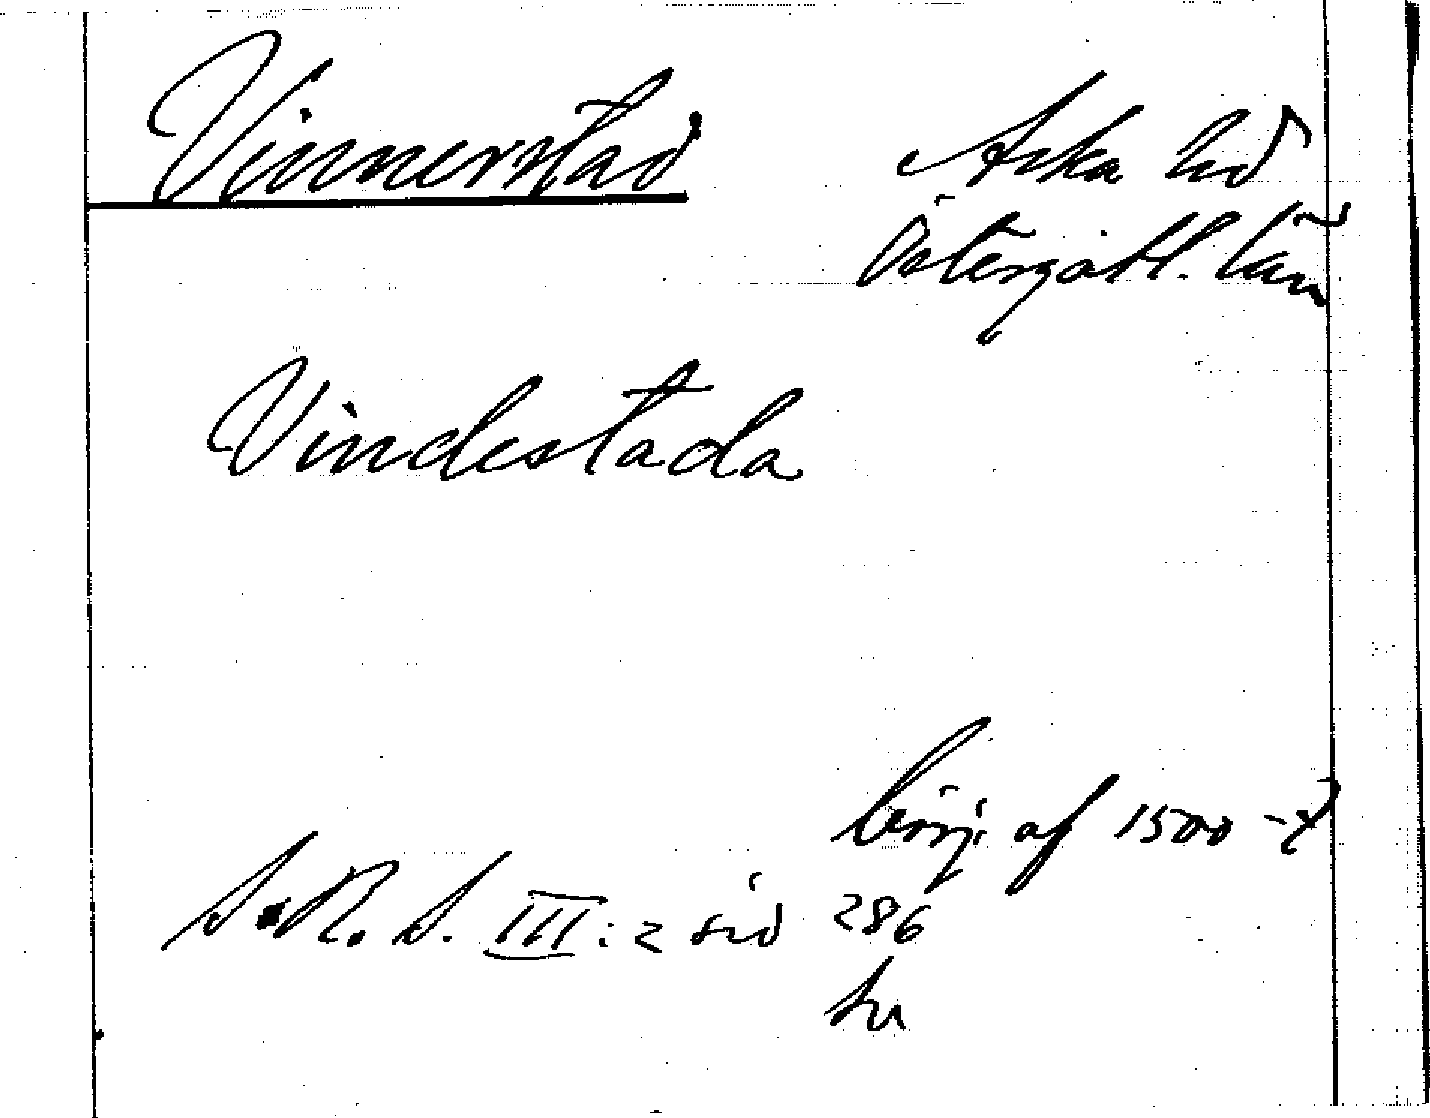 Vinnerstad Aska hd
Östergötl. län
Vindestada
börj. af 1500-t
S.R.S. III:2 sid 286